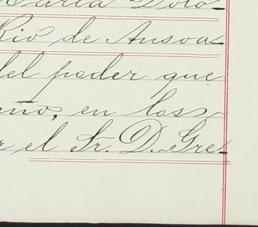 María Dolo-
Río de Ansoa-
del poder que
eño, en los
r el Sr. D. Gre-